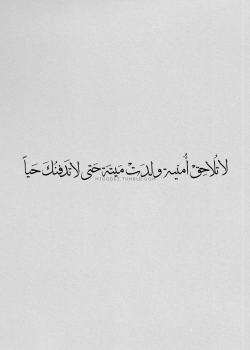 لا تُلاحِقْ أُمنيـة ولِدَتْ مَيتَة حَتى لا تَدفنُكَ حَياً